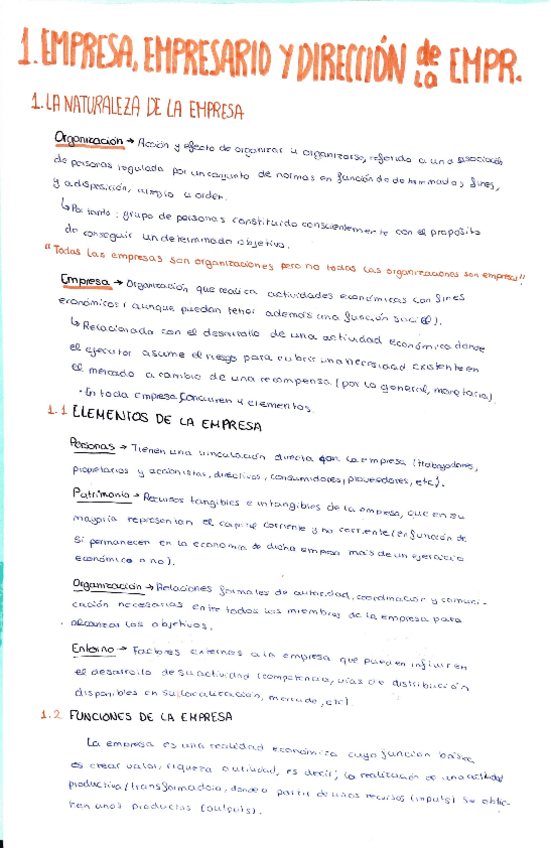 1. EMPRESA, EMPRESARIO Y DIRECCIÓN de la EMPR.
1. LA NATURALEZA DE LA EMPRESA
Organización → Acción y efecto de organizar u organizarse, referido a una asociación
de personas regulada por un conjunto de normas en función de determinados fines,
y a disposición, arreglo u orden.
↳ Por tanto: grupo de personas constituido conscientemente con el propósito
de conseguir un determinado objetivo.
"Todas las empresas son organizaciones pero no todas las organizaciones son empresas".
Empresa → Organización que realiza actividades económicas con fines
económicos (aunque puedan tener además una función social).
↳ Relacionada con el desarrollo de una actividad económica donde
el ejecutor asume el riesgo para cubrir una necesidad existente en
el mercado a cambio de una recompensa (por lo general, monetaria).
· En toda empresa concurren 4 elementos.
1.1 ELEMENTOS DE LA EMPRESA
Personas → Tienen una vinculación directa con la empresa (trabajadores,
propietarios y accionistas, directivos, consumidores, proveedores, etc).
Patrimonio → Recursos tangibles e intangibles de la empresa, que en su
mayoría representan el capital corriente y no corriente (en función de
si permanecen en la economía de dicha empresa más de un ejercicio
económico o no).
Organización → Relaciones formales de autoridad, coordinación y comuni-
cación necesarias entre todos los miembros de la empresa para
alcanzar los objetivos.
Entorno → Factores externos a la empresa que pueden influir en
el desarrollo de su actividad (competencia, vías de distribución
disponibles en su localización, mercado, etc).
1.2 FUNCIONES DE LA EMPRESA
La empresa es una realidad económica cuya función básica
es crear valor, riqueza o utilidad, es decir, la realización de una actividad
productiva/transformadora, donde a partir de unos recursos (inputs) se obtie-
nen unos productos (outputs).